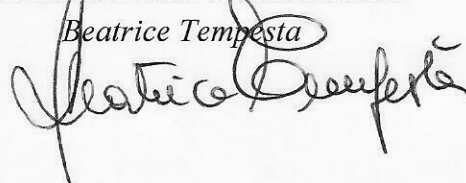 Beatrice Tempesta
Beatrice Tempesta